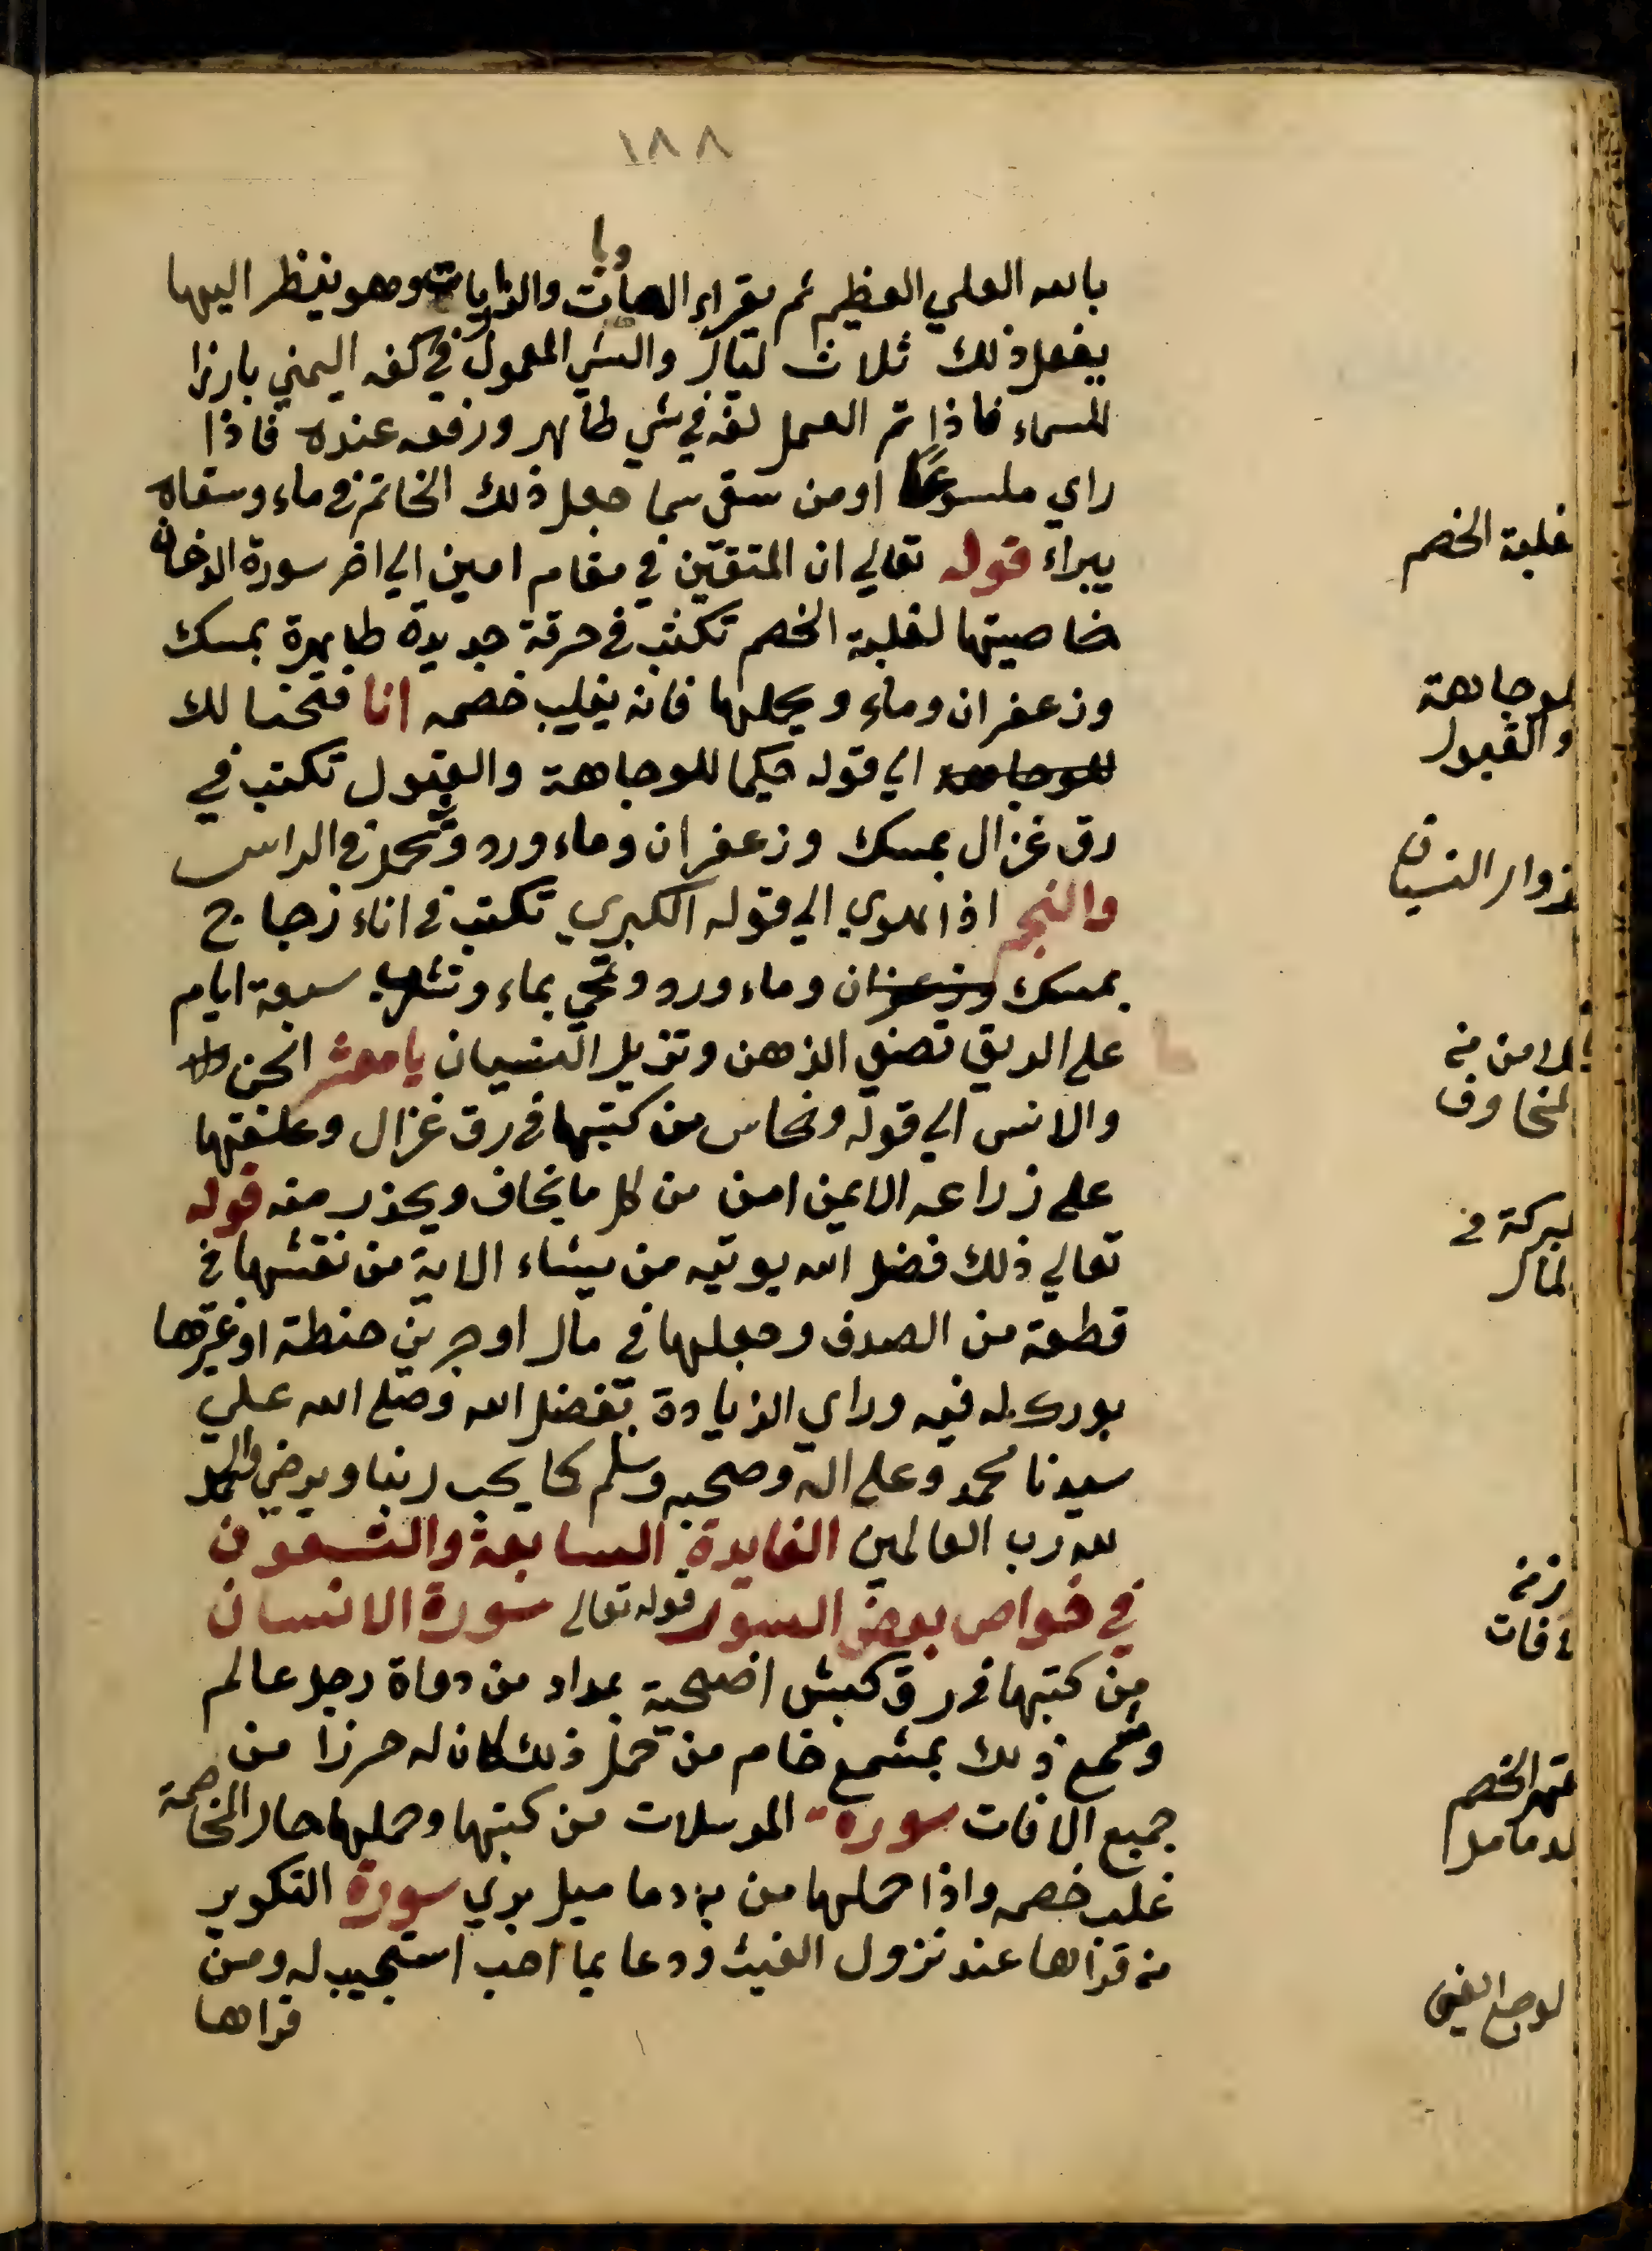 ١٨٨
بالله العلي العظيم ثم يقراء والذاريات وهو ينظر اليها
يفعل ذلك ثلاث ليال والشي المعمول في كفه اليمني بارزا
للسماء فاذا تم العمل لفه في شي طاهر ورفعه عنده فاذا
راي ملسوعًا او من سقي سما جعل ذلك الخاتم في ماء وسقاه
يبراء قوله تعالي ان المتقين في مقام امين الي اخر سورة الدخان
خاصيتها لغلبة الخصم تكتب في خرقة جديدة طاهرة بمسك
وزعفران وماء ويحملها فانه يغلب خصمه انا فتحنا لك
للوجاهة الي قوله حكيما للوجاهة والقبول تكتب في
رق غزال بمسك وزعفران وماء ورد وتحمل في الراس
والنجم اذا هوي الي قوله الكبري تكتب في اناء زجاج
بمسك وزعفران وماء ورد وتمحي بماء وتشرب سبعة ايام
علي الريق تصفي الذهن وتزيل النسيان يا معشر الجن
والانس الي قوله ونحاس من كتبها في رق غزال وعلقها
علي زراعه الايمن امن من كل ما يخاف ويحذر منه قوله
تعالي ذلك فضل الله يوتيه من يشاء الاية من نقشها في
قطعة من الصدف وجعلها في مال او جرين حنطة او غيرها
بورك له فيه وراي الزيادة بفضل الله وصلي الله علي
سيدنا محمد وعلي اله وصحبه وسلم كما يحب ربنا ويرضي والحمد
لله رب العالمين الفايدة السابعة والتسعون
في خواص بعض السور قوله تعالي سورة الانسان
من كتبها في رق كبش اضحية بمداد من دواة رجل عالم
وشمع ذلك بمشمع خام من حمل ذلك كان له حرزا من
جميع الافات سورة المرسلات من كتبها وحملها حال المخاصمة
غلب خصمه واذا حملها من به دماميل بري سورة التكوير
من قراها عند نزول الغيث ودعا بما احب استجيب له ومن
قراها
غلبة الخصم
للوجاهة
والقبول
لزوال النسيان
للامن من
المخاوف
لبركة في
المال
قهر الخصم
لدمامل
لوجع العين